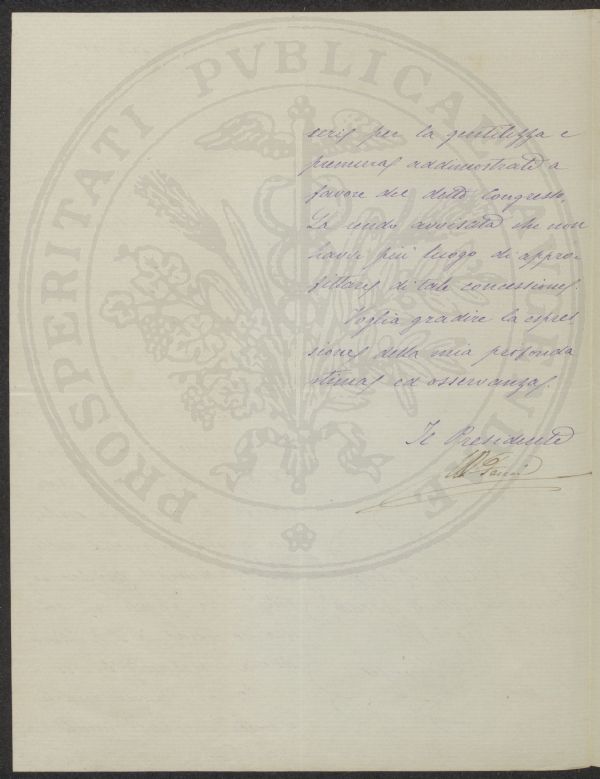 PROSPERITATI PVBLICAE AVGENDAE
seris per la gentilezza e
premura addimostrata a
favore del detto Congresso,
La rendo avvisata che non
havvi più luogo di appro-
fittare di tale concessione.
Voglia gradire la espres
sione della mia profonda
stima ed osservanza.
Il Presidente